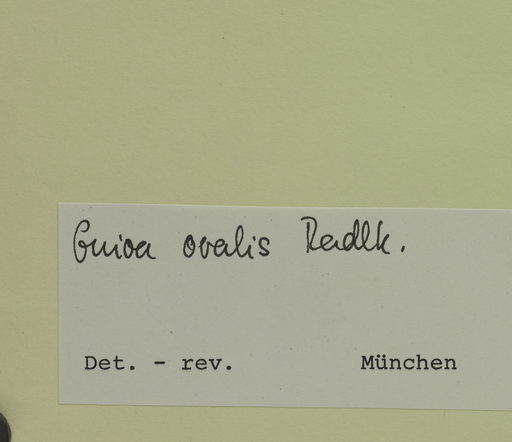 Guioa ovalis Radlk.
Det. - rev. München